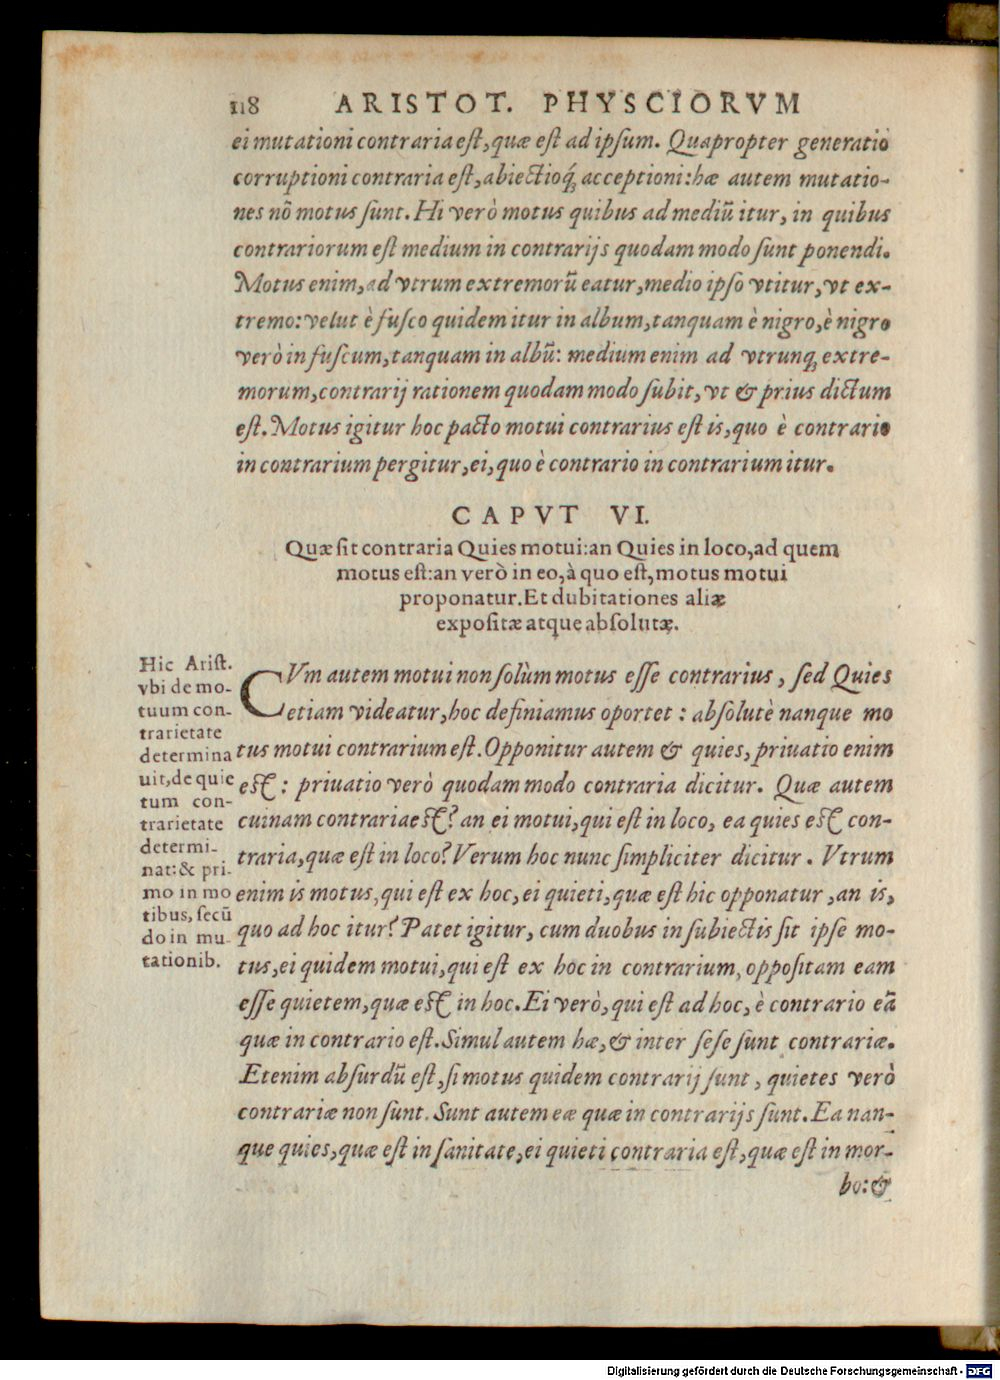 118 ARISTOT. PHYSCIORVM
ei mutationi contraria eſt, quæ eſt ad ipſum. Quapropter generatio
corruptioni contraria eſt, abiectioq́; acceptioni: hæ autem mutatio-
nes nō motus ſunt. Hi verò motus quibus ad mediũ itur, in quibus
contrariorum eſt medium in contrarijs quodam modo ſunt ponendi.
Motus enim, ad vtrum extremorũ eatur, medio ipſo vtitur, vt ex-
tremo: velut è fuſco quidem itur in album, tanquam è nigro, è nigro
verò in fuſcum, tanquam in albũ: medium enim ad vtrunq; extre-
morum, contrarij rationem quodam modo ſubit, vt & prius dictum
eſt. Motus igitur hoc pacto motui contrarius eſt is, quo è contrario
in contrarium pergitur, ei, quo è contrario in contrarium itur.
CAPVT VI.
Quæ ſit contraria Quies motui: an Quies in loco, ad quem
motus eſt: an verò in eo, à quo eſt, motus motui
proponatur. Et dubitationes aliæ
expoſitæ atque abſolutæ.
Hic Ariſt.
vbi de mo-
tuum con-
trarietate
determina
uit, de quie
tum con-
trarietate
determi-
nat: & pri-
mo in mo
tibus, ſecũ
do in mu-
tationib.
CVm autem motui non ſolùm motus eſſe contrarius, ſed Quies
etiam videatur, hoc definiamus oportet: abſolutè nanque mo
tus motui contrarium eſt. Opponitur autem & quies, priuatio enim
eſt: priuatio verò quodam modo contraria dicitur. Quæ autem
cuinam contraria eſt? an ei motui, qui eſt in loco, ea quies eſt con-
traria, quæ eſt in loco? Verum hoc nunc ſimpliciter dicitur. Vtrum
enim is motus, qui eſt ex hoc, ei quieti, quæ eſt hic opponatur, an is,
quo ad hoc itur? Patet igitur, cum duobus in ſubiectis ſit ipſe mo-
tus, ei quidem motui, qui eſt ex hoc in contrarium, oppoſitam eam
eſſe quietem, quæ eſt in hoc. Ei verò, qui eſt ad hoc, è contrario eã
quæ in contrario eſt. Simul autem hæ, & inter ſeſe ſunt contrariæ.
Etenim abſurdũ eſt, ſi motus quidem contrarij ſunt, quietes verò
contrariæ non ſunt. Sunt autem eæ quæ in contrarijs ſunt. Ea nan-
que quies, quæ eſt in ſanitate, ei quieti contraria eſt, quæ eſt in mor-
bo: &
Digitalisierung gefördert durch die Deutsche Forschungsgemeinschaft - DFG